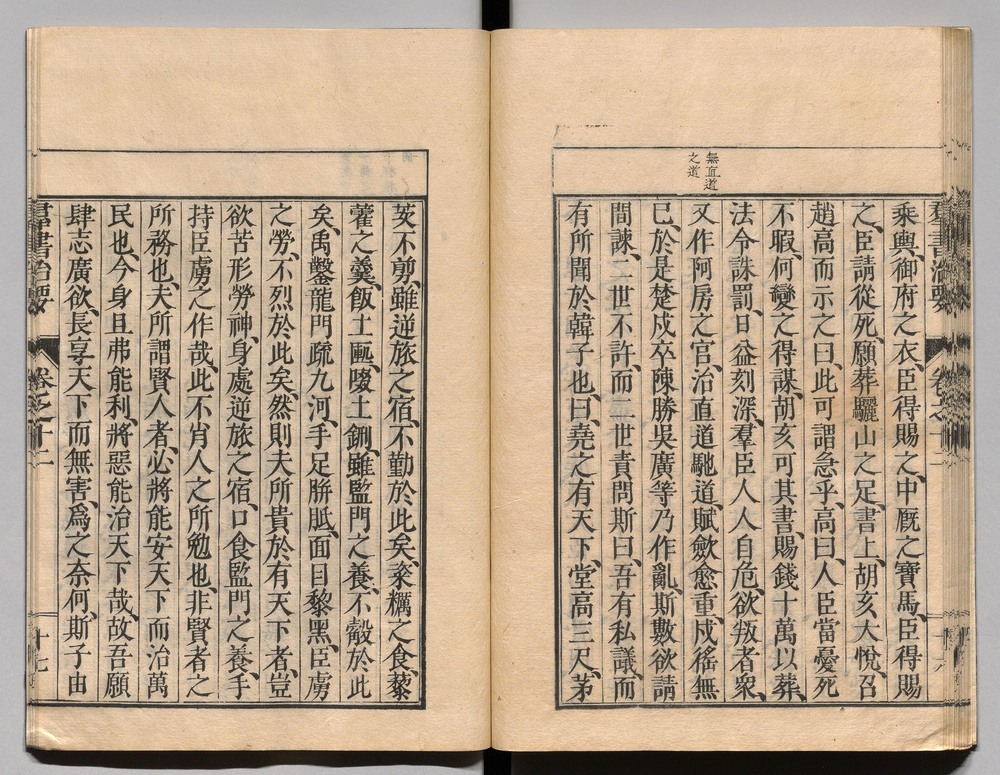 無直道
之道
乘輿、御府之衣、臣得賜之、中廐之寶馬、臣得賜
之、臣請從死、願葬驪山之足、書上、胡亥大悅、召
趙高而示之曰、此可謂急乎、高曰、人臣當憂死
不暇、何變之得謀、胡亥可其書、賜錢十萬以葬、
法令誅罰、日益刻深、羣臣人人自危、欲叛者衆、
又作阿房之宮、治直道馳道、賦歛愈重、戍徭無
已、於是楚戍卒陳勝吳廣等乃作亂、斯數欲請
間諫、二世不許、而二世責問斯曰、吾有私議、而
有所聞於韓子也、曰、堯之有天下、堂高三尺、茅
茨不剪、雖逆旅之宿、不勤於此矣、粢糲之食、藜
藿之羹、飯土匭、啜土鉶、雖監門之養、不觳於此
矣、禹鑿龍門、疏九河、手足胼胝、面目黎黑、臣虜
之勞、不烈於此矣、然則夫所貴於有天下者、豈
欲苦形勞神、身處逆旅之宿、口食監門之養、手
持臣虜之作哉、此不肖人之所勉也、非賢者之
所務也、夫所謂賢人者、必將能安天下而治萬
民也、今身且弗能利、將惡能治天下哉、故吾願
肆志廣欲、長享天下而無害、爲之奈何、斯子由
羣書治要 卷之十二 十七